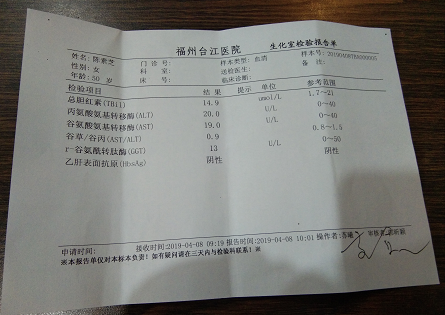 福州台江医院 生化室检验报告单
姓名: 陈素芝 门诊号: 样本类型: 血清 样本号:
性别: 女 科 室: 送检医生: 备 注:
年龄: 50 岁 床 号: 临床诊断:
检验项目 结 果 提示 单位 参考范围
总胆红素(TBil) 14.9 umol/L 1.7~21
丙氨酸氨基转移酶(ALT) 20.0 U/L 0~40
谷氨酸氨基转移酶(AST) 19.0 U/L 0~40
谷草/谷丙(AST/ALT) 0.9 0.8~1.5
r-谷氨酰转肽酶(GGT) 13 U/L 0~50
乙肝表面抗原(HbsAg) 阴性 阴性
申请时间: 接收时间:2019-04-08 09:19 报告时间:2019-04-08 10:01 操作者: 审核者:
※本报告单仅对本标本负责! 如有疑问请在三天内与检验科联系! ※